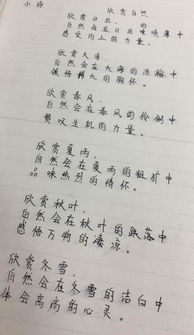 小诗
欣赏自然
欣赏日出，
自然会在日出的喷薄中
感受向上的力量。
欣赏大海，
自然会在大海的浩瀚中
领悟博大的胸怀。
欣赏春风，
自然会在春风的
赞叹生机的力量。
欣赏夏雨，
自然会在夏雨的粗犷中
品味热烈的情怀。
欣赏秋叶，
自然会在秋叶的跌落中
感悟万物的凄凉。
欣赏冬雪，
自然会在冬雪的洁白中
体会高尚的心灵。